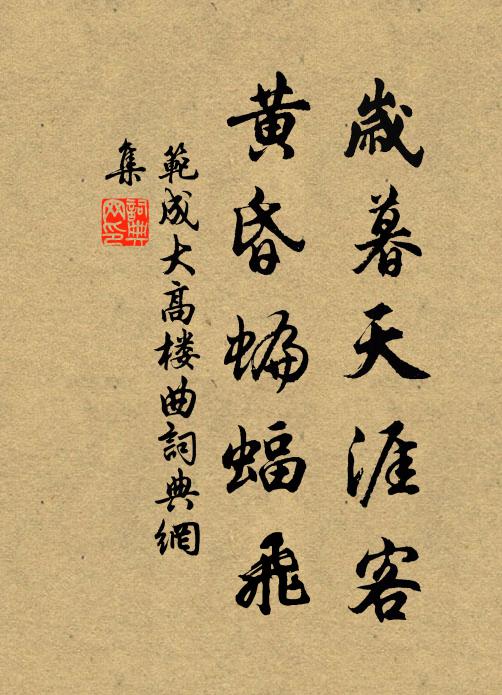 歲暮天涯客
黃昏蝙蝠飛
範成大高楼曲詞典網
集
詞典網印